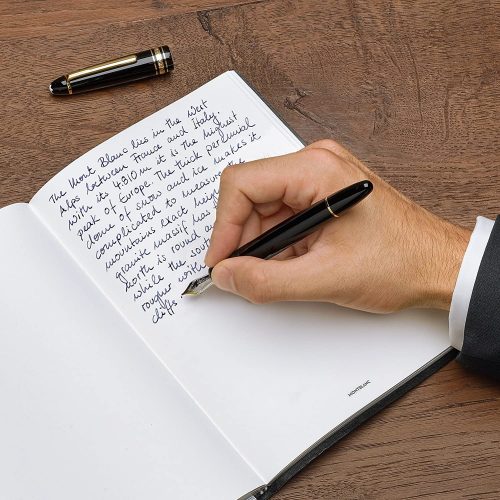 The Mont Blanc lies in the West
Alps between France and Italy.
With its 4.810m it is the highest
peak of Europe. The thick perennial
dome of snow and ice makes it
complicated to measure the
mountains exact
granite massif has
North is round
while the
rougher with
cliffs
MONTBLANC